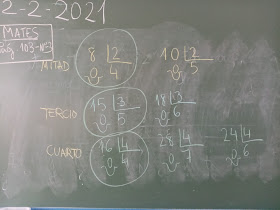 2-2-2021
MATES
Pág 103-nº3
MITAD 8 |2 10 |2
0 4 0 5
TERCIO 15 |3 18 |3
0 5 0 6
CUARTO 16 |4 28 |4 24 |4
0 4 0 7 0 6